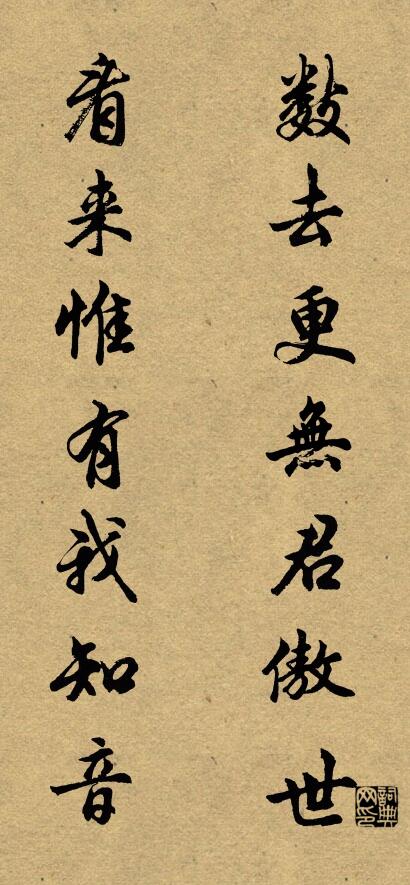 數去更無君傲世
看來惟有我知音
詞典网印